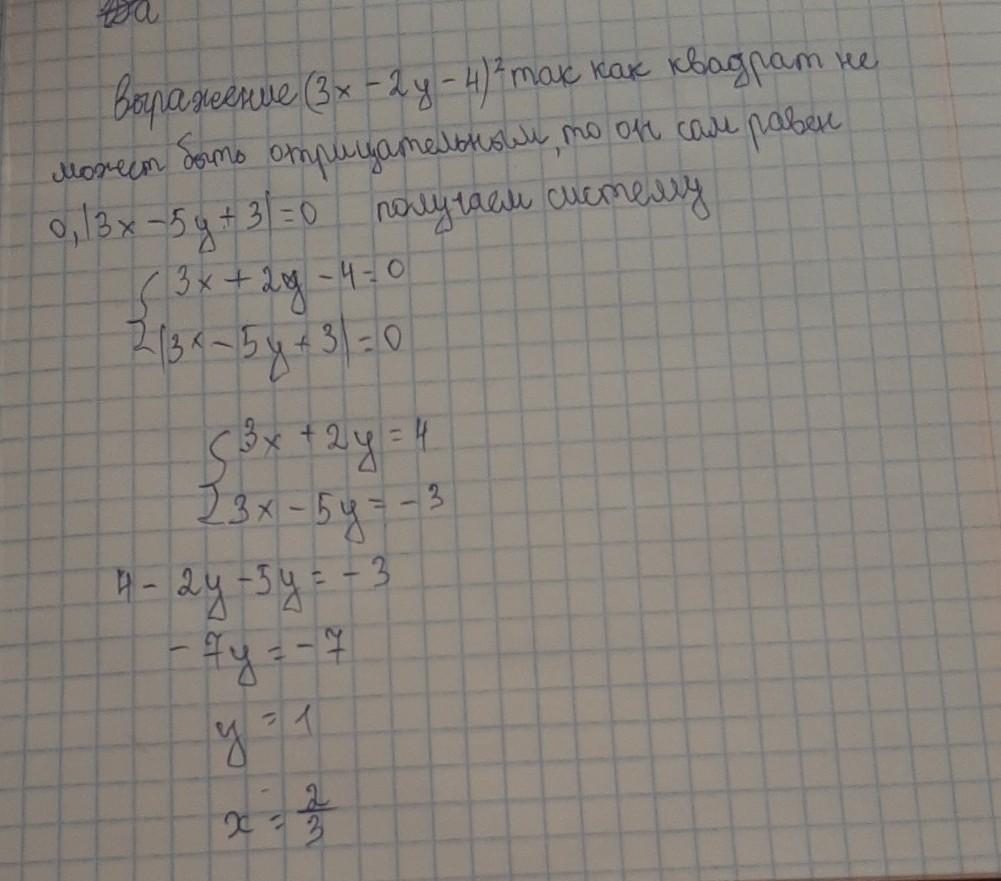 а
Выражение (3x - 2y - 4)² так как квадрат не
может быть отрицательным, то он сам равен
0, |3x - 5y + 3| = 0 получаем систему
{ 3x + 2y - 4 = 0
|3x - 5y + 3| = 0
{ 3x + 2y = 4
3x - 5y = -3
4 - 2y - 5y = -3
-7y = -7
y = 1
x = 2/3